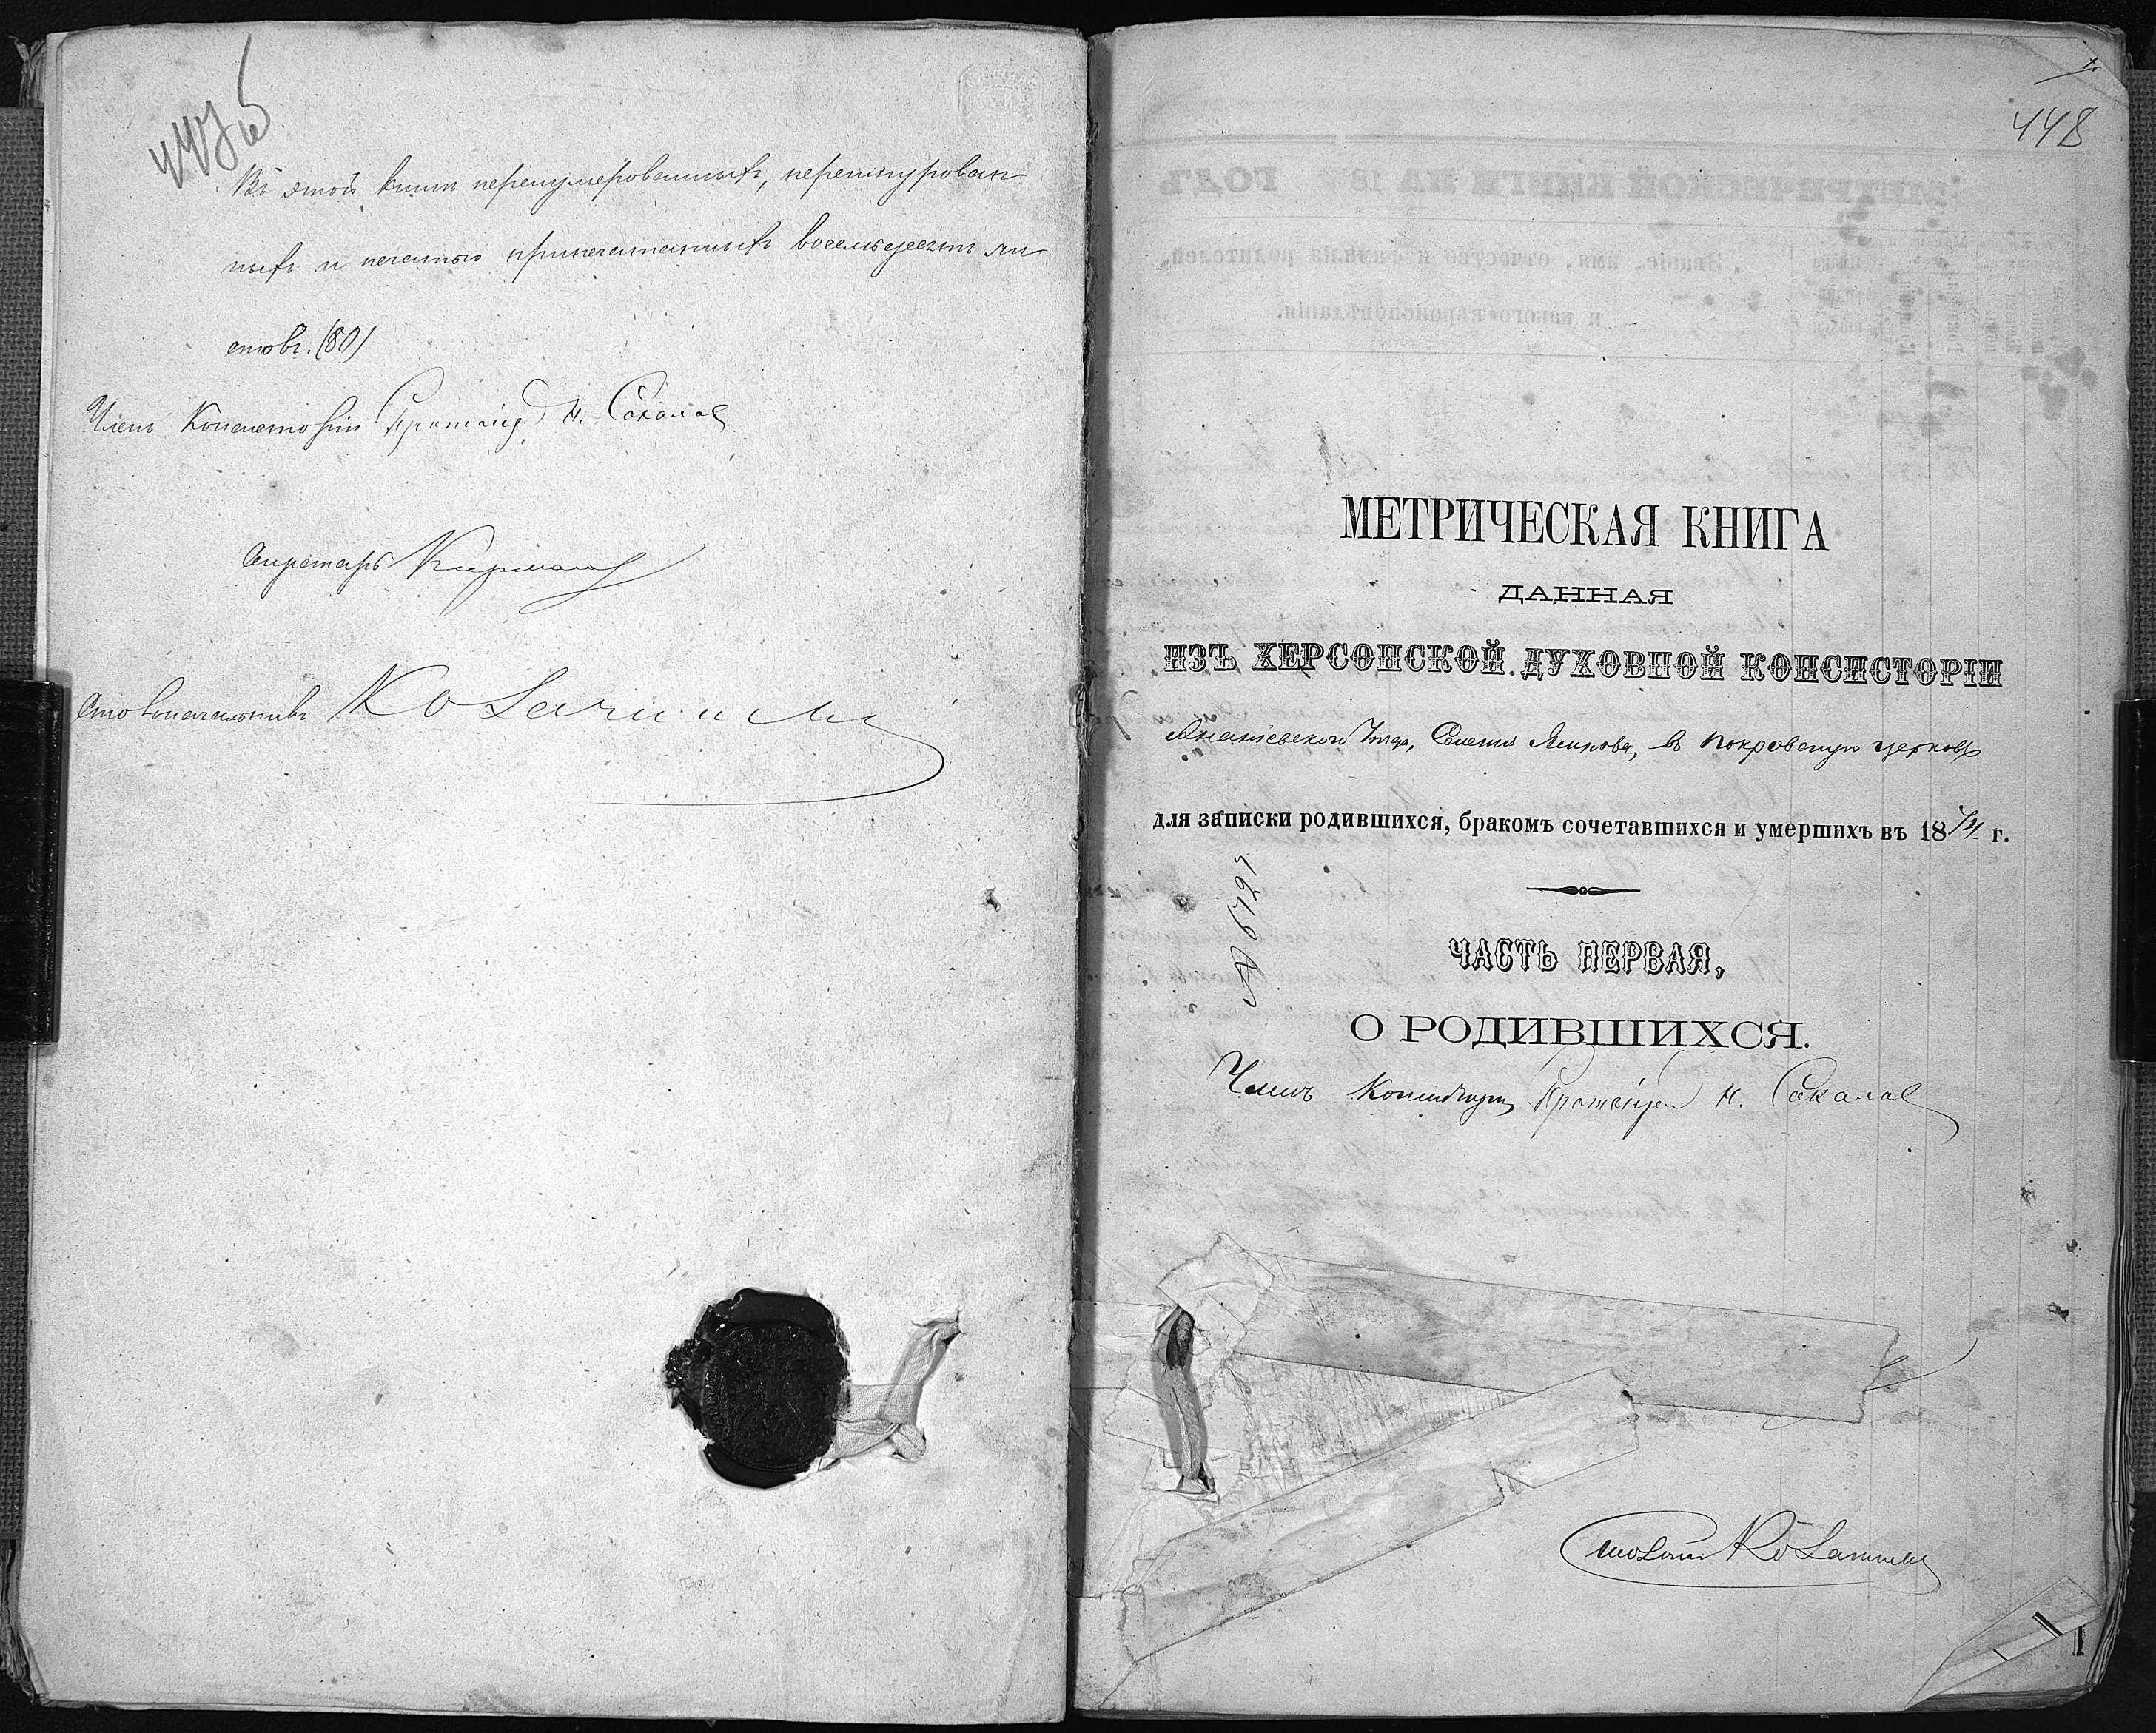 Въ этой книгѣ перенумерованныхъ, перешнурован-
ныхъ и печатью припечатанныхъ восемьдесятъ ли-
стовъ. (80)
Членъ Консисторіи Н. Соколов
Секретарь
Столоначальникъ
448
МЕТРИЧЕСКАЯ КНИГА
ДАННАЯ
ИЗЪ ХЕРСОНСКОЙ ДУХОВНОЙ КОНСИСТОРІИ
Ананіевского Уѣзда, Селенія въ Покровскую церковь
для записки родившихся, бракомъ сочетавшихся и умершихъ въ 1874 г.
№ 6721
ЧАСТЬ ПЕРВАЯ,
О РОДИВШИХСЯ.
Членъ Консисторіи Н. Соколов